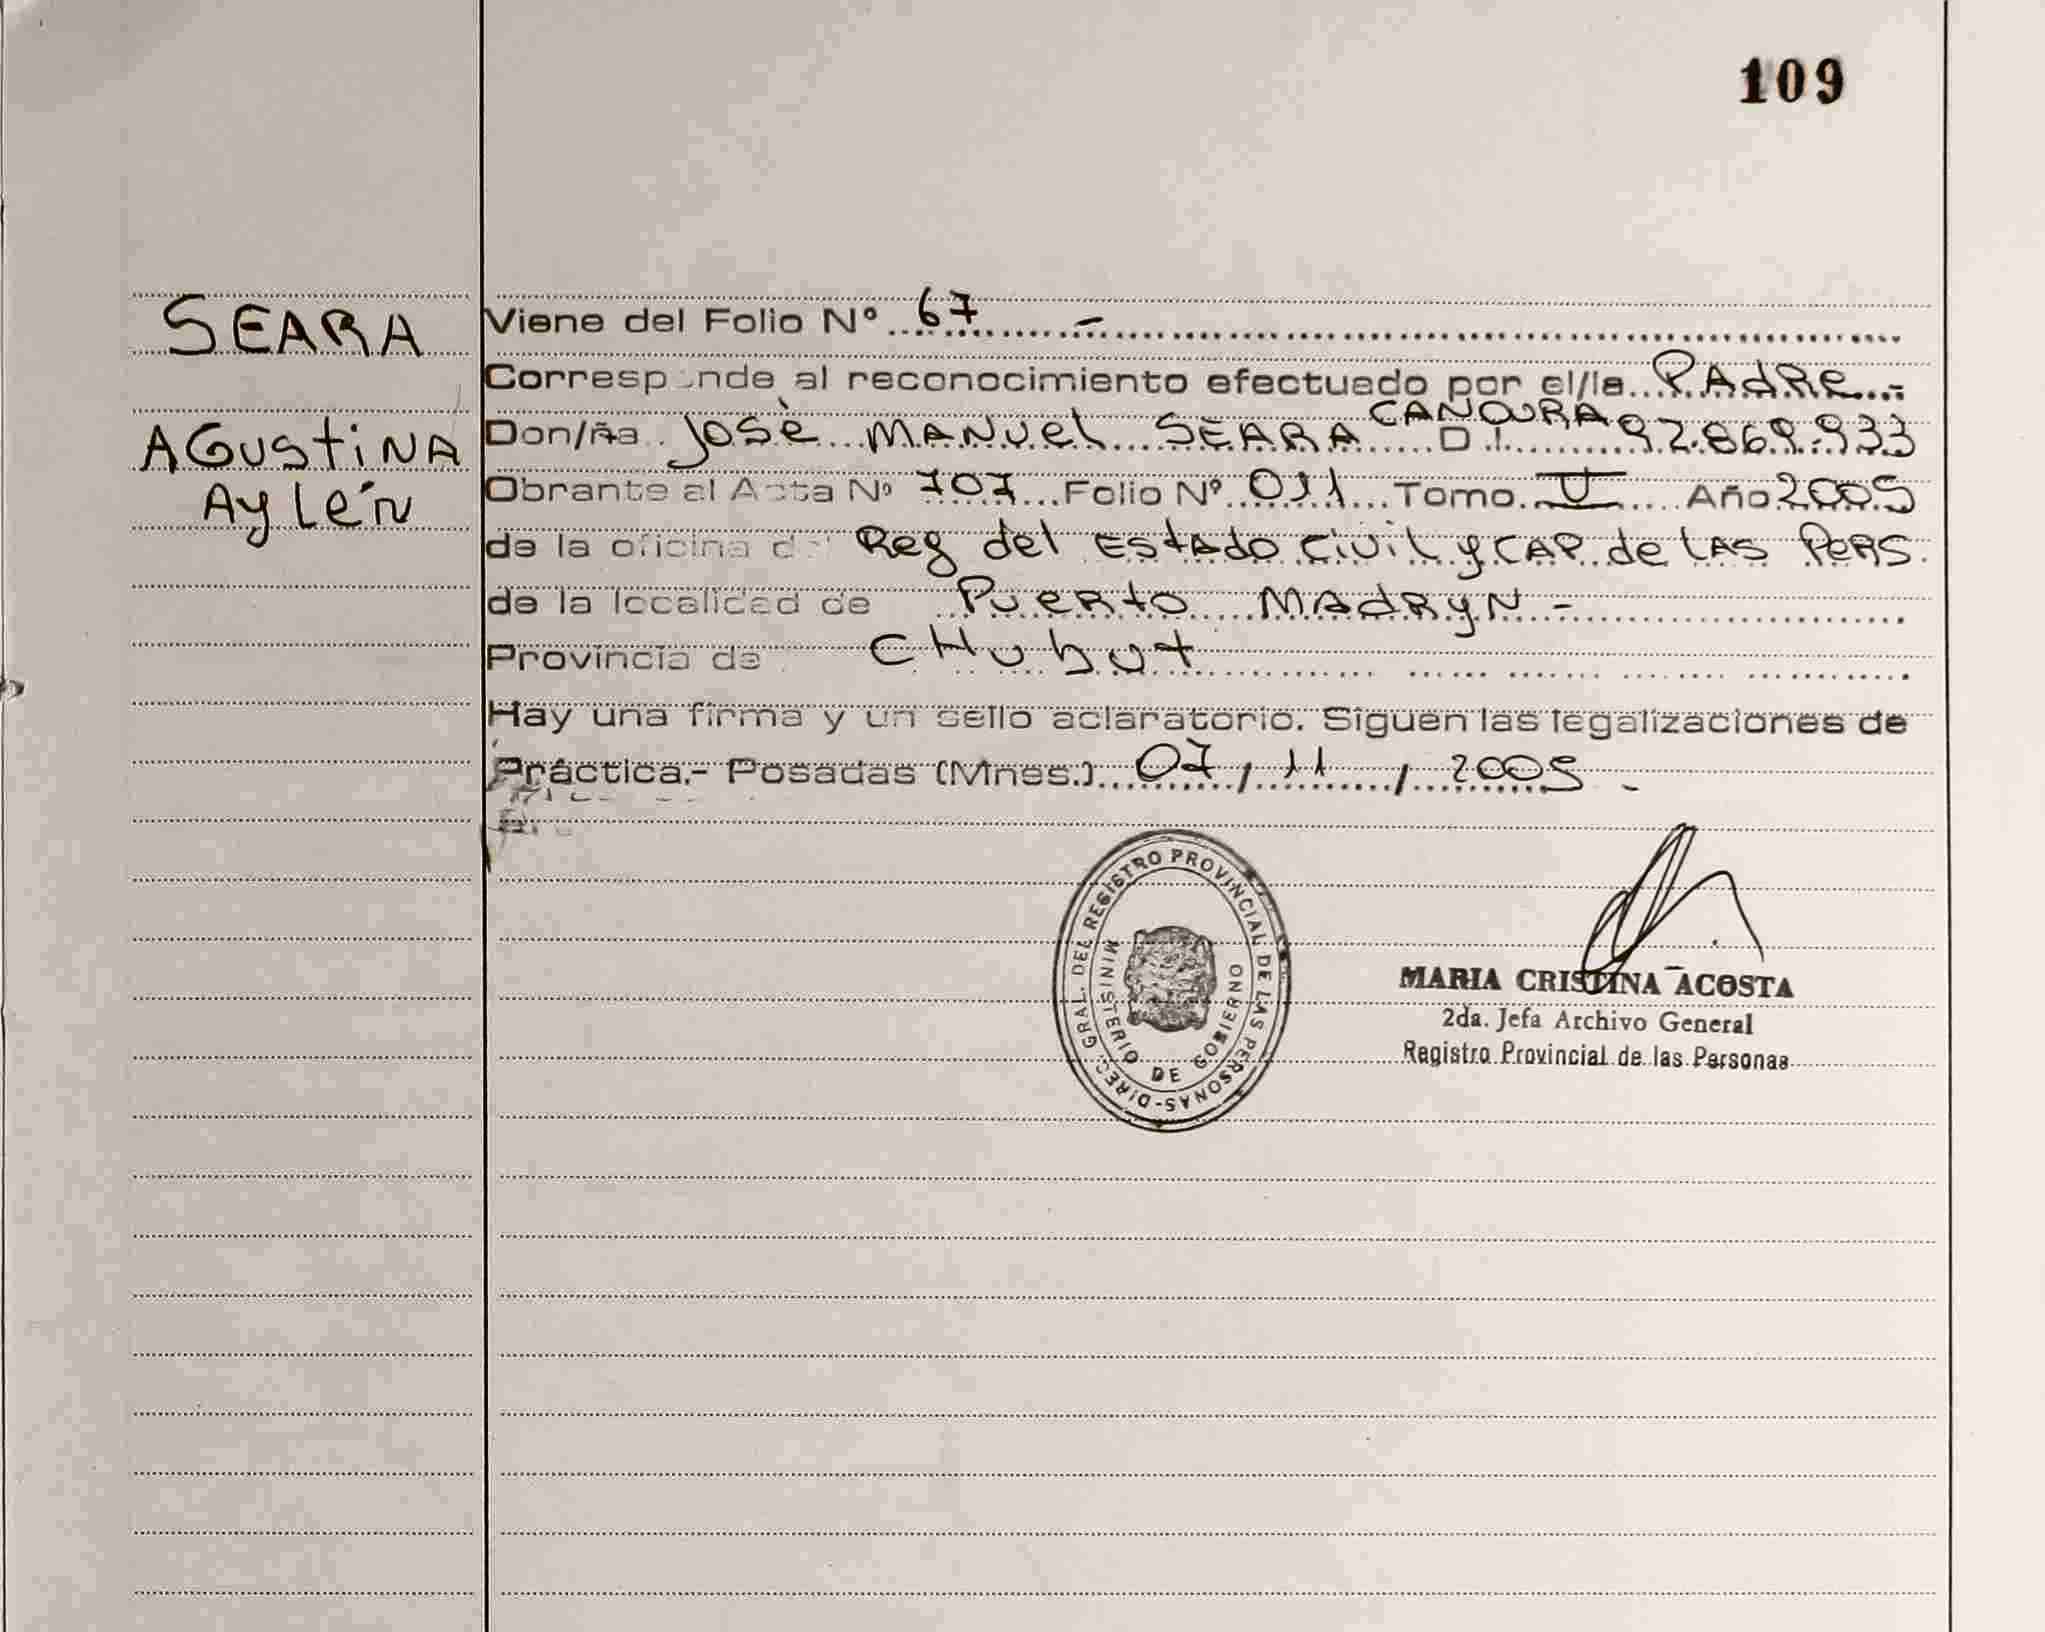 109
SEARA
AGUSTINA
AYLÉN
Viene del Folio Nº 67 -
Corresponde al reconocimiento efectuado por el/la PADRE.-
Don/ña José MANUEL SEARA CANOURA D.I. 92.869.933
Obrante al Acta Nº 707 Folio Nº 011 Tomo Año 2005
de la oficina de Reg del ESTADO Civil y CAP. de LAS PERS.
de la localidad de PUERTO MADRYN -
Provincia de CHUBUT
Hay una firma y un sello aclaratorio. Siguen las legalizaciones de
Práctica.- Posadas (Mnes.) 07 / 11 / 2005 -
DIREC. GRAL. DEL REGISTRO PROVINCIAL DE LAS PERSONAS-
MINISTERIO DE GOBIERNO
MARIA CRISTINA ACOSTA
2da. Jefa Archivo General
Registro Provincial de las Personas